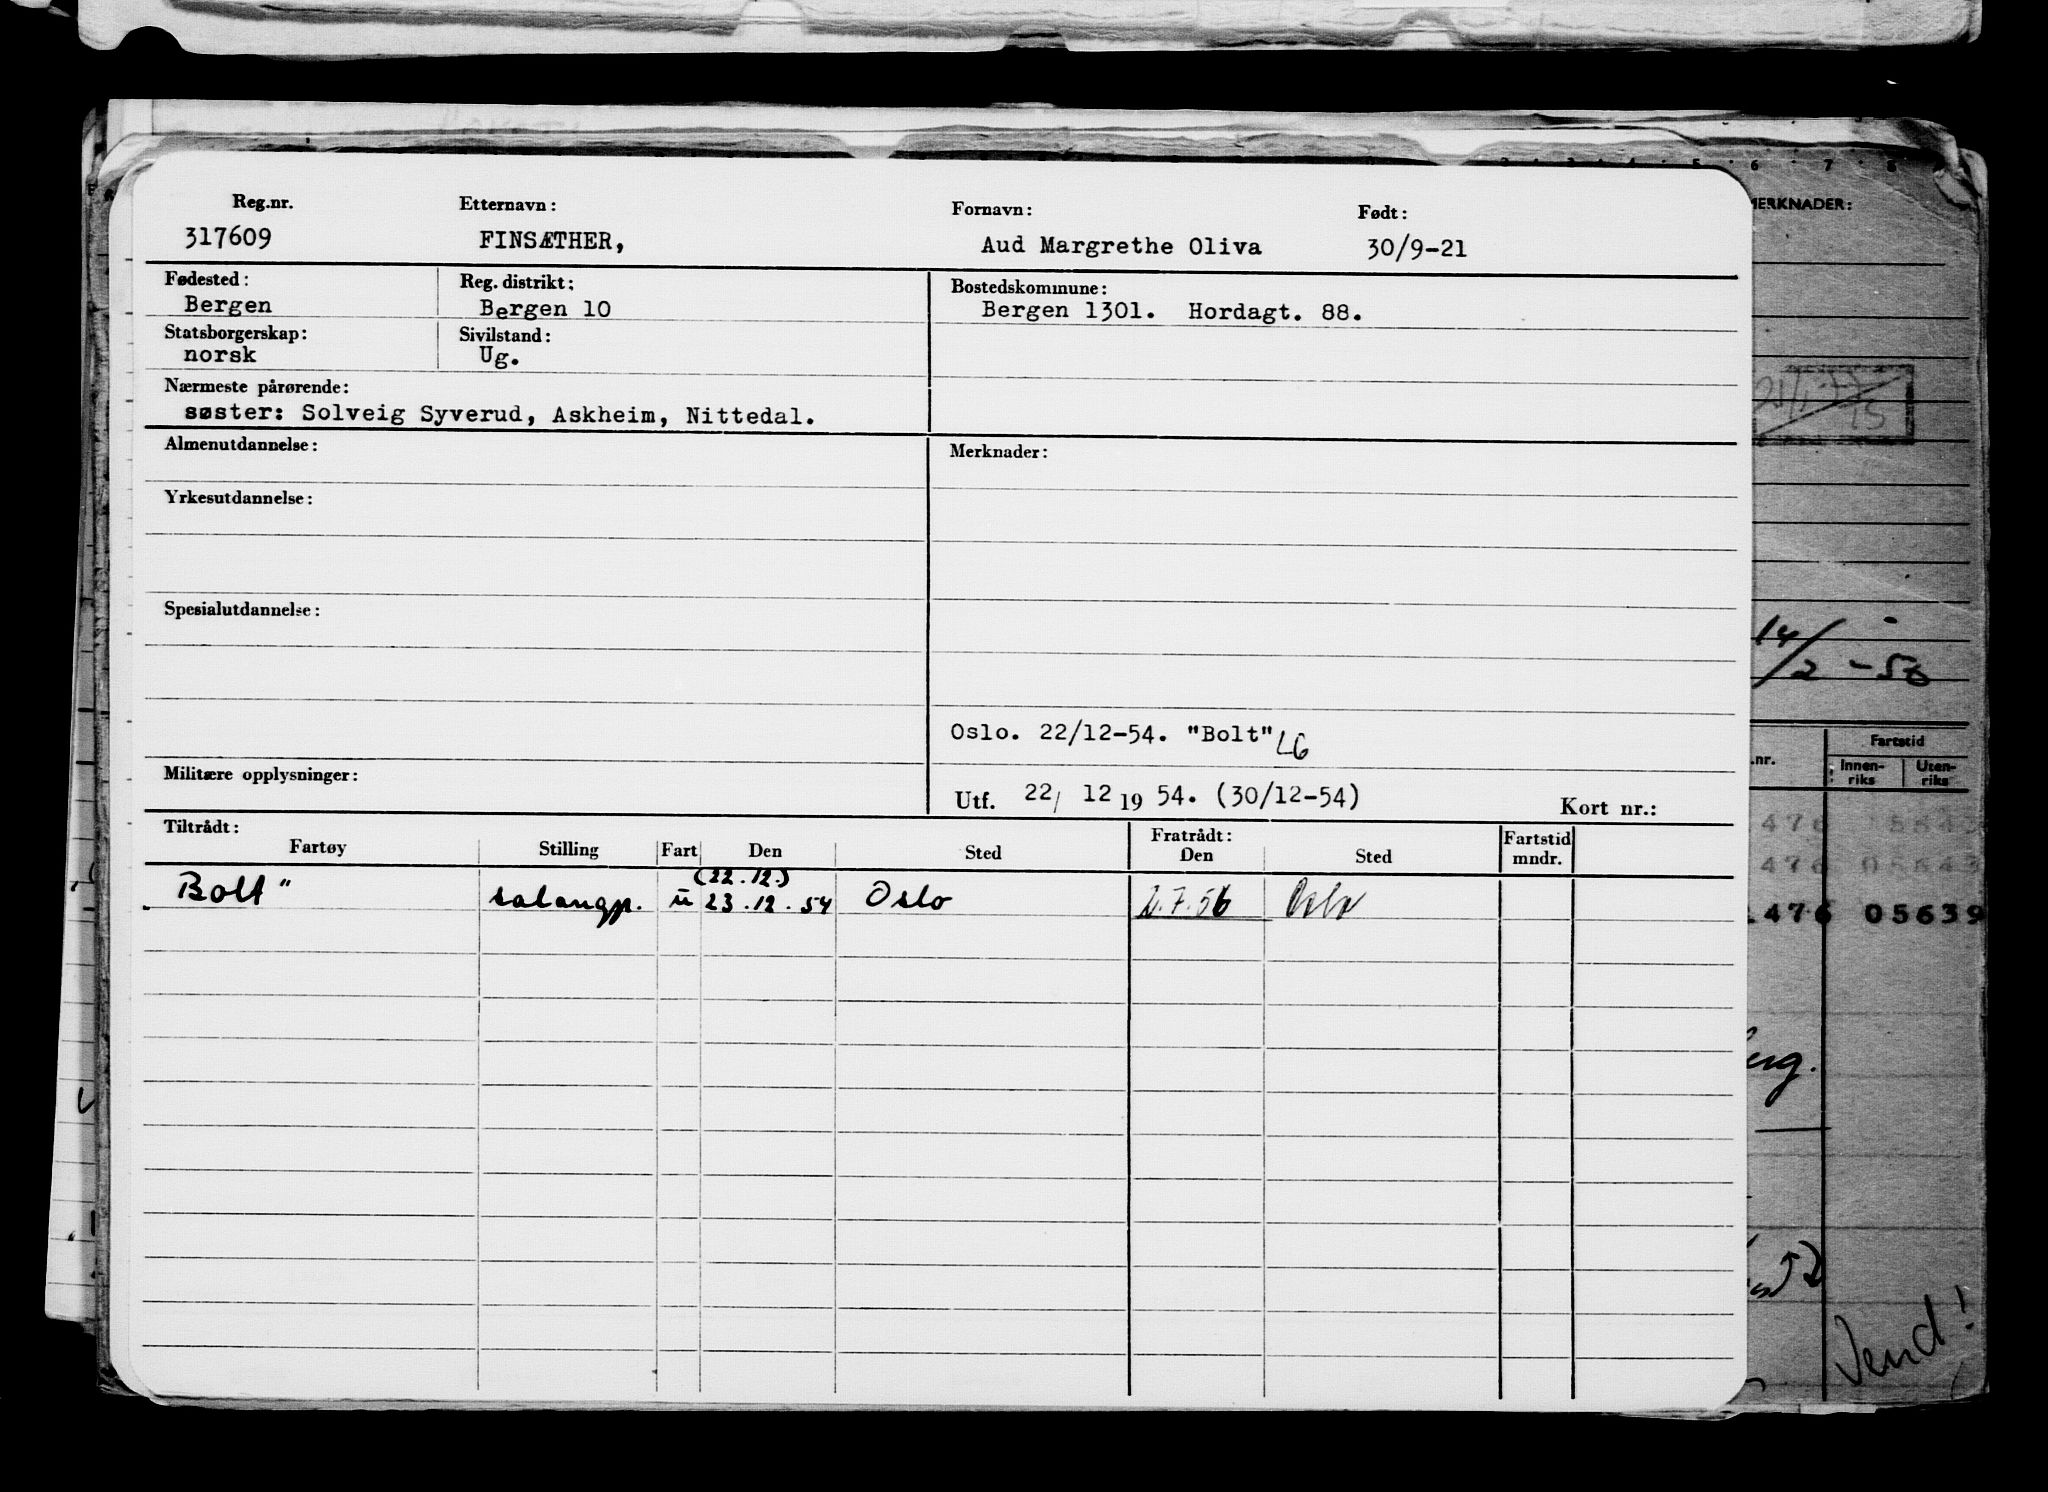 Reg.nr. Etternavn: Fornavn: Født:
317609 FINSÆTHER, Aud Margrethe Oliva 30/9-21
Fødested: Reg. distrikt: Bostedskommune:
Bergen Bergen 10 Bergen 1301. Hordagt. 88.
Statsborgerskap: Sivilstand:
norsk Ug.
Nærmeste pårørende:
søster: Solveig Syverud, Askheim, Nittedal.
Almenutdannelse: Merknader:
Yrkesutdannelse:
Spesialutdannelse:
Oslo. 22/12-54. "Bolt" LG
Militære opplysninger:
Utf. 22/ 12 19 54. (30/12-54) Kort nr.:
Tiltrådt: Fratrådt: Fartstid
Fartøy Stilling Fart Den Sted Den Sted mndr.
(22.12.)
„Bolt" salongp. u 23.12.54 Oslo 2.7.56 Oslo
2 3 4 5 6 7 8
MERKNADER:
14/2 - 56
.nr. Fartstid
Innen-riks Uten-riks
476 0564
476 05643
.476 05639
Vend!